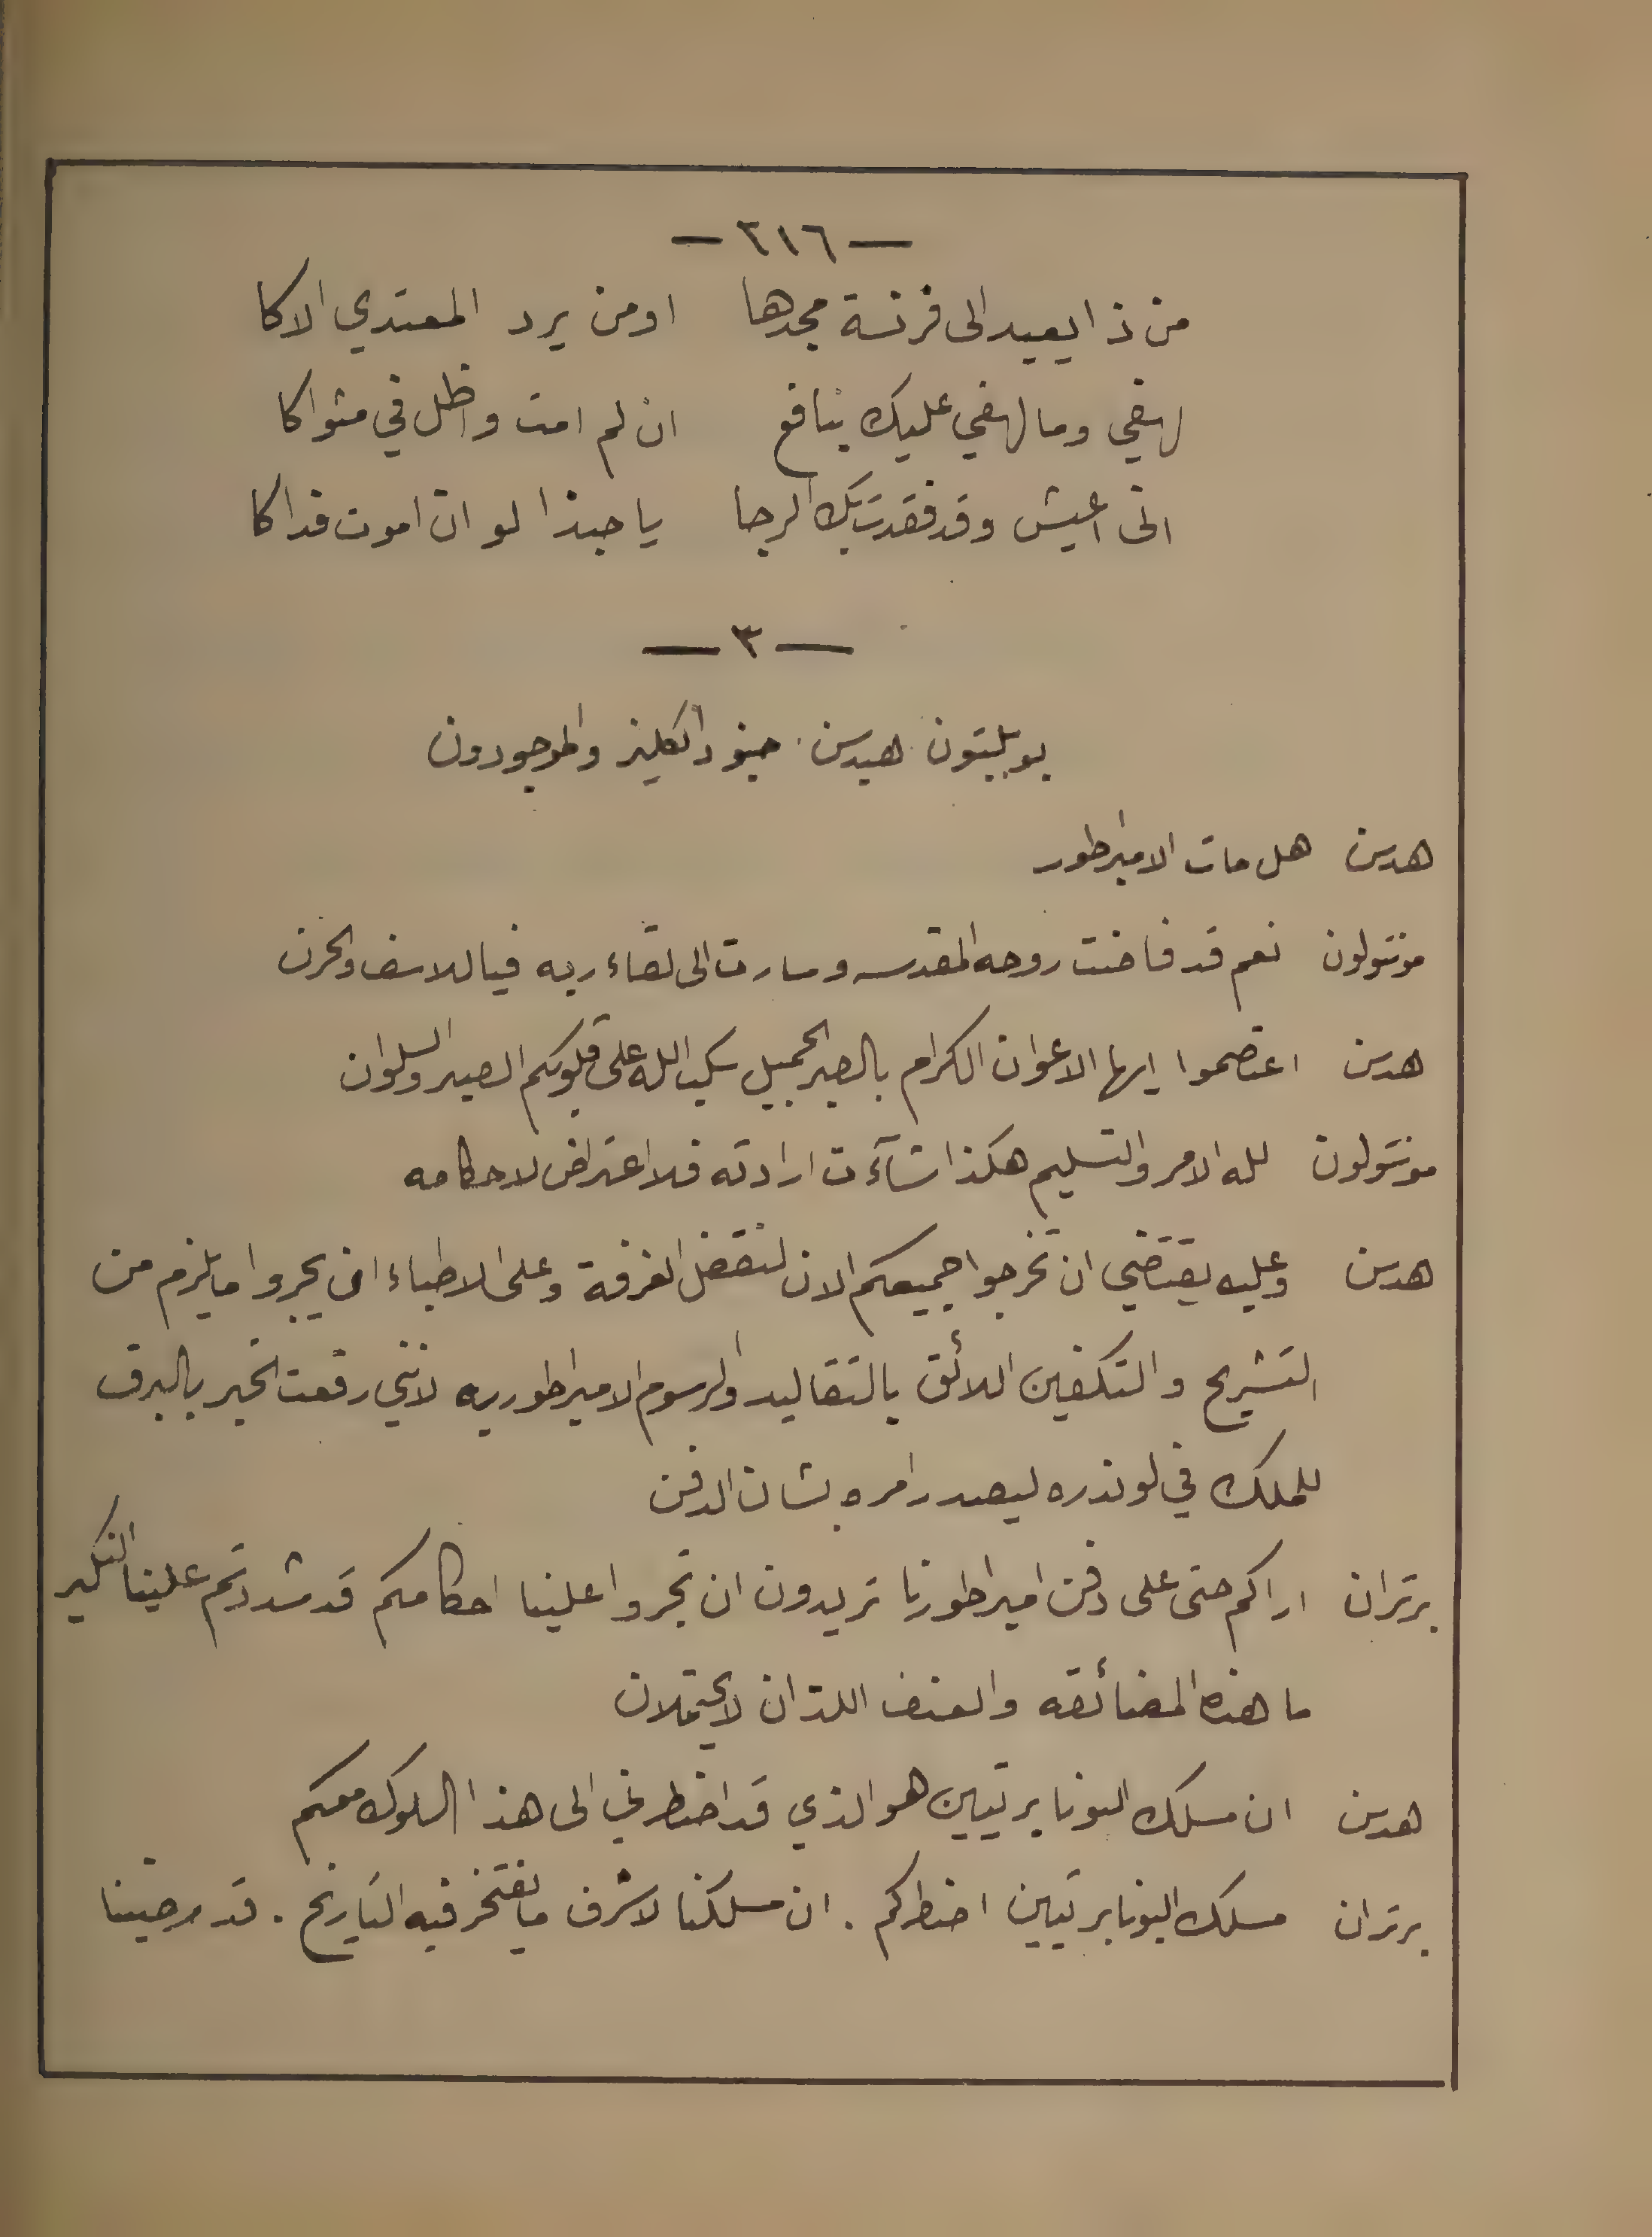 — ٢١٦ —
من ذا يعيد الى فرنسة مجدها    اومن يرد المعتدي الاكا
لهفي وما لهفي عليك بنافع    ان لم امت واظل في مثواكا
انى اعيش وقد فقدت بك الرجا    يا حبذا لو ان اموت فداكا
— ٣ —
هدسن. جنود انكليز والموجودون
هدسن هل مات الامبراطور
مونتولون نعم قد فاضت روحه المقدسه وسارت الى لقاء ربه فيا للاسف والحزن
هدسن اعتصموا ايها الاعوان الكرام بالصبر الجميل سكب الله على قلوبكم الصبر والسلوان
مونتولون لله الامر والتسليم هكذا شآءت ارادته فلا اعتراض لاحكامه
هدسن وعليه يقتضي ان تخرجوا جميعكم الان لنقفل الغرفة وعلى الاطباء ان يجروا ما يلزم من
التشريح والتكفين اللائق بالتقاليد والرسوم الامبراطوريه لانني رفعت الخبر بالبرق
للملك في لوندره ليصدر امره بشان الدفن
برتران اراكم حتى على دفن امبراطورنا تريدون ان تجروا علينا احكامكم قد شددتم علينا النكير
ما هذه المضائقه والعنف اللذان لا يحتملان
هدسن ان مسلك البونابرتيين هو الذي قد اضطرني الى هذا السلوك معكم
برتران مسلك البونابرتيين اضطركم. ان مسلكنا لاشرف ما يفتخر فيه التاريخ. قد رضينا